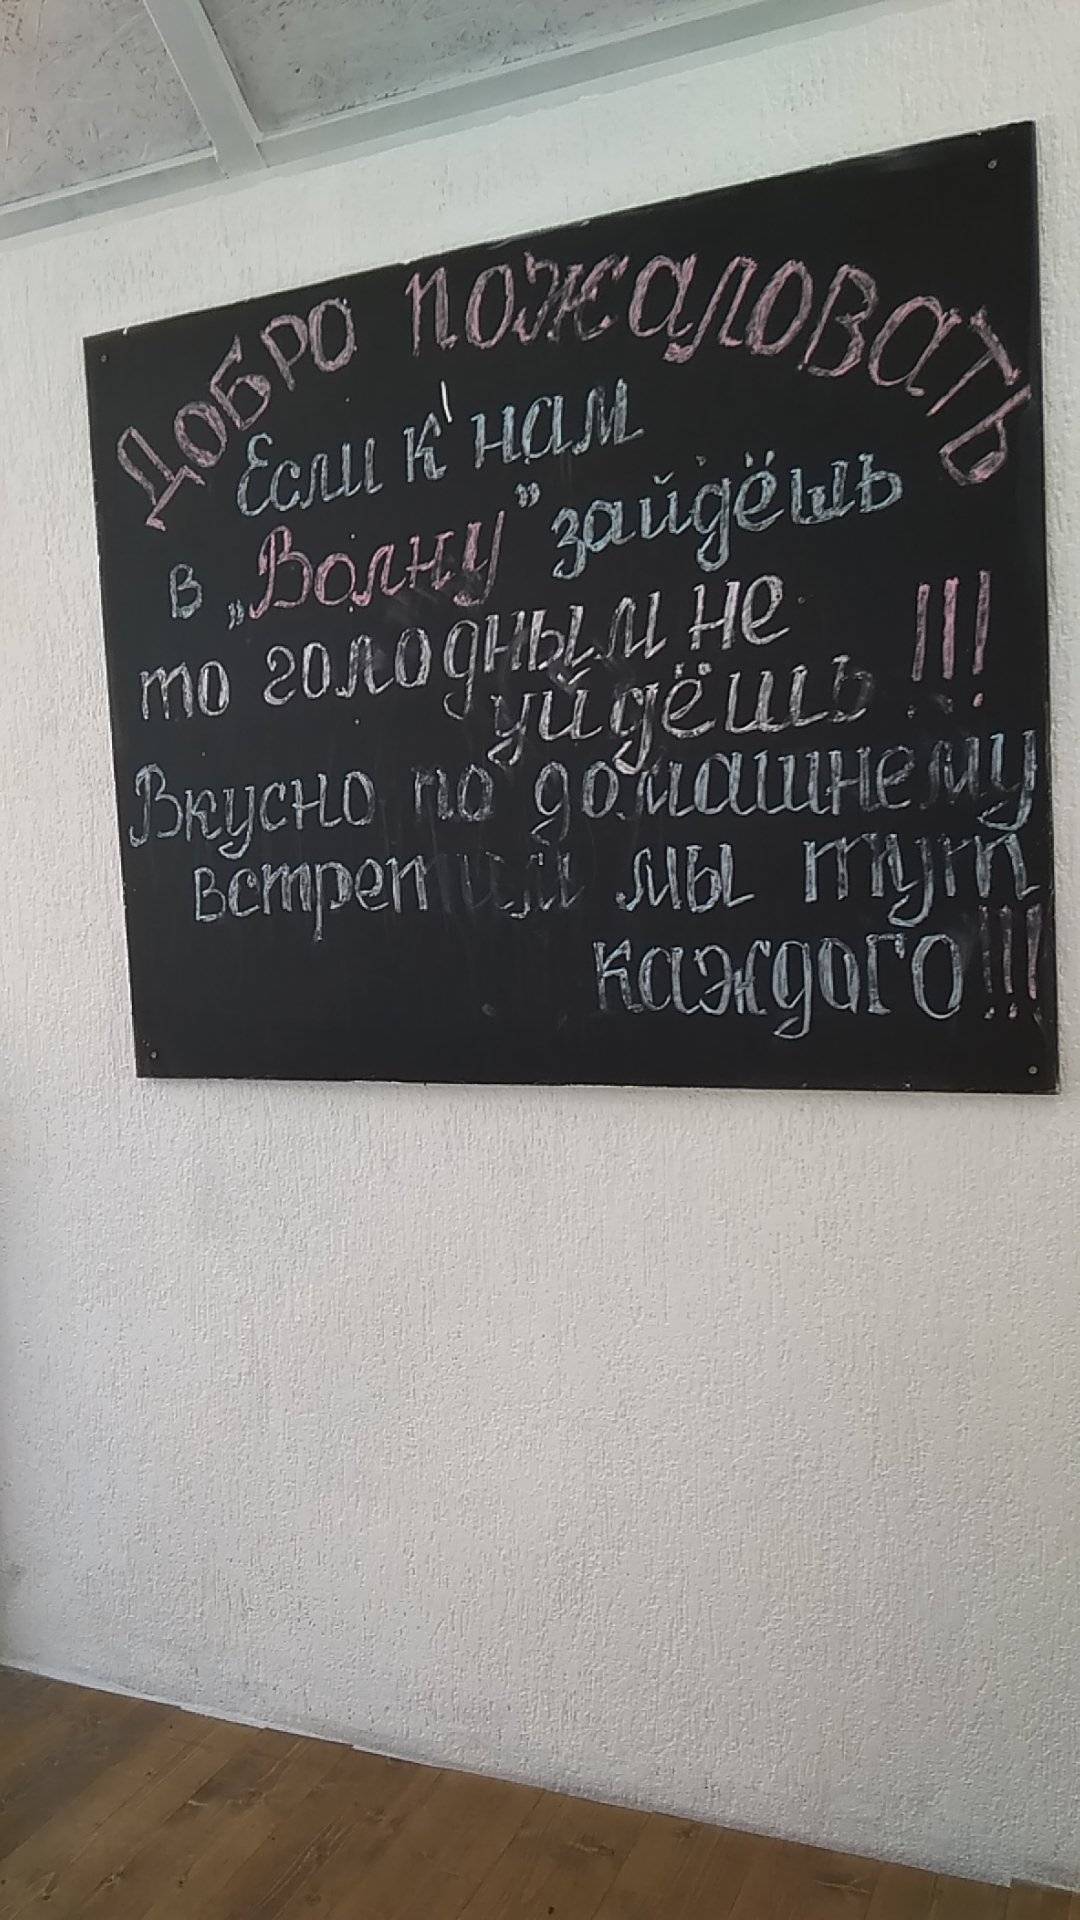 Добро пожаловать
Если к нам
в „Волну” зайдёшь
то голодным не
уйдёшь !!!
Вкусно по домашнему
встретим мы тут
каждого!!!